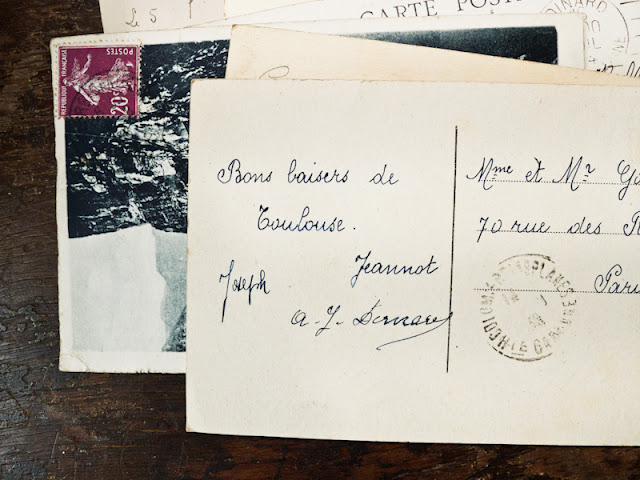 25
CARTE POST
DINARD
POSTES
REPUBLIQUE FRANÇAISE
20c
Bons baisers de
Toulouse.
Jeannot
Joseph
Mme et Mr G
70 rue des R
Pari
HTE GARONNE